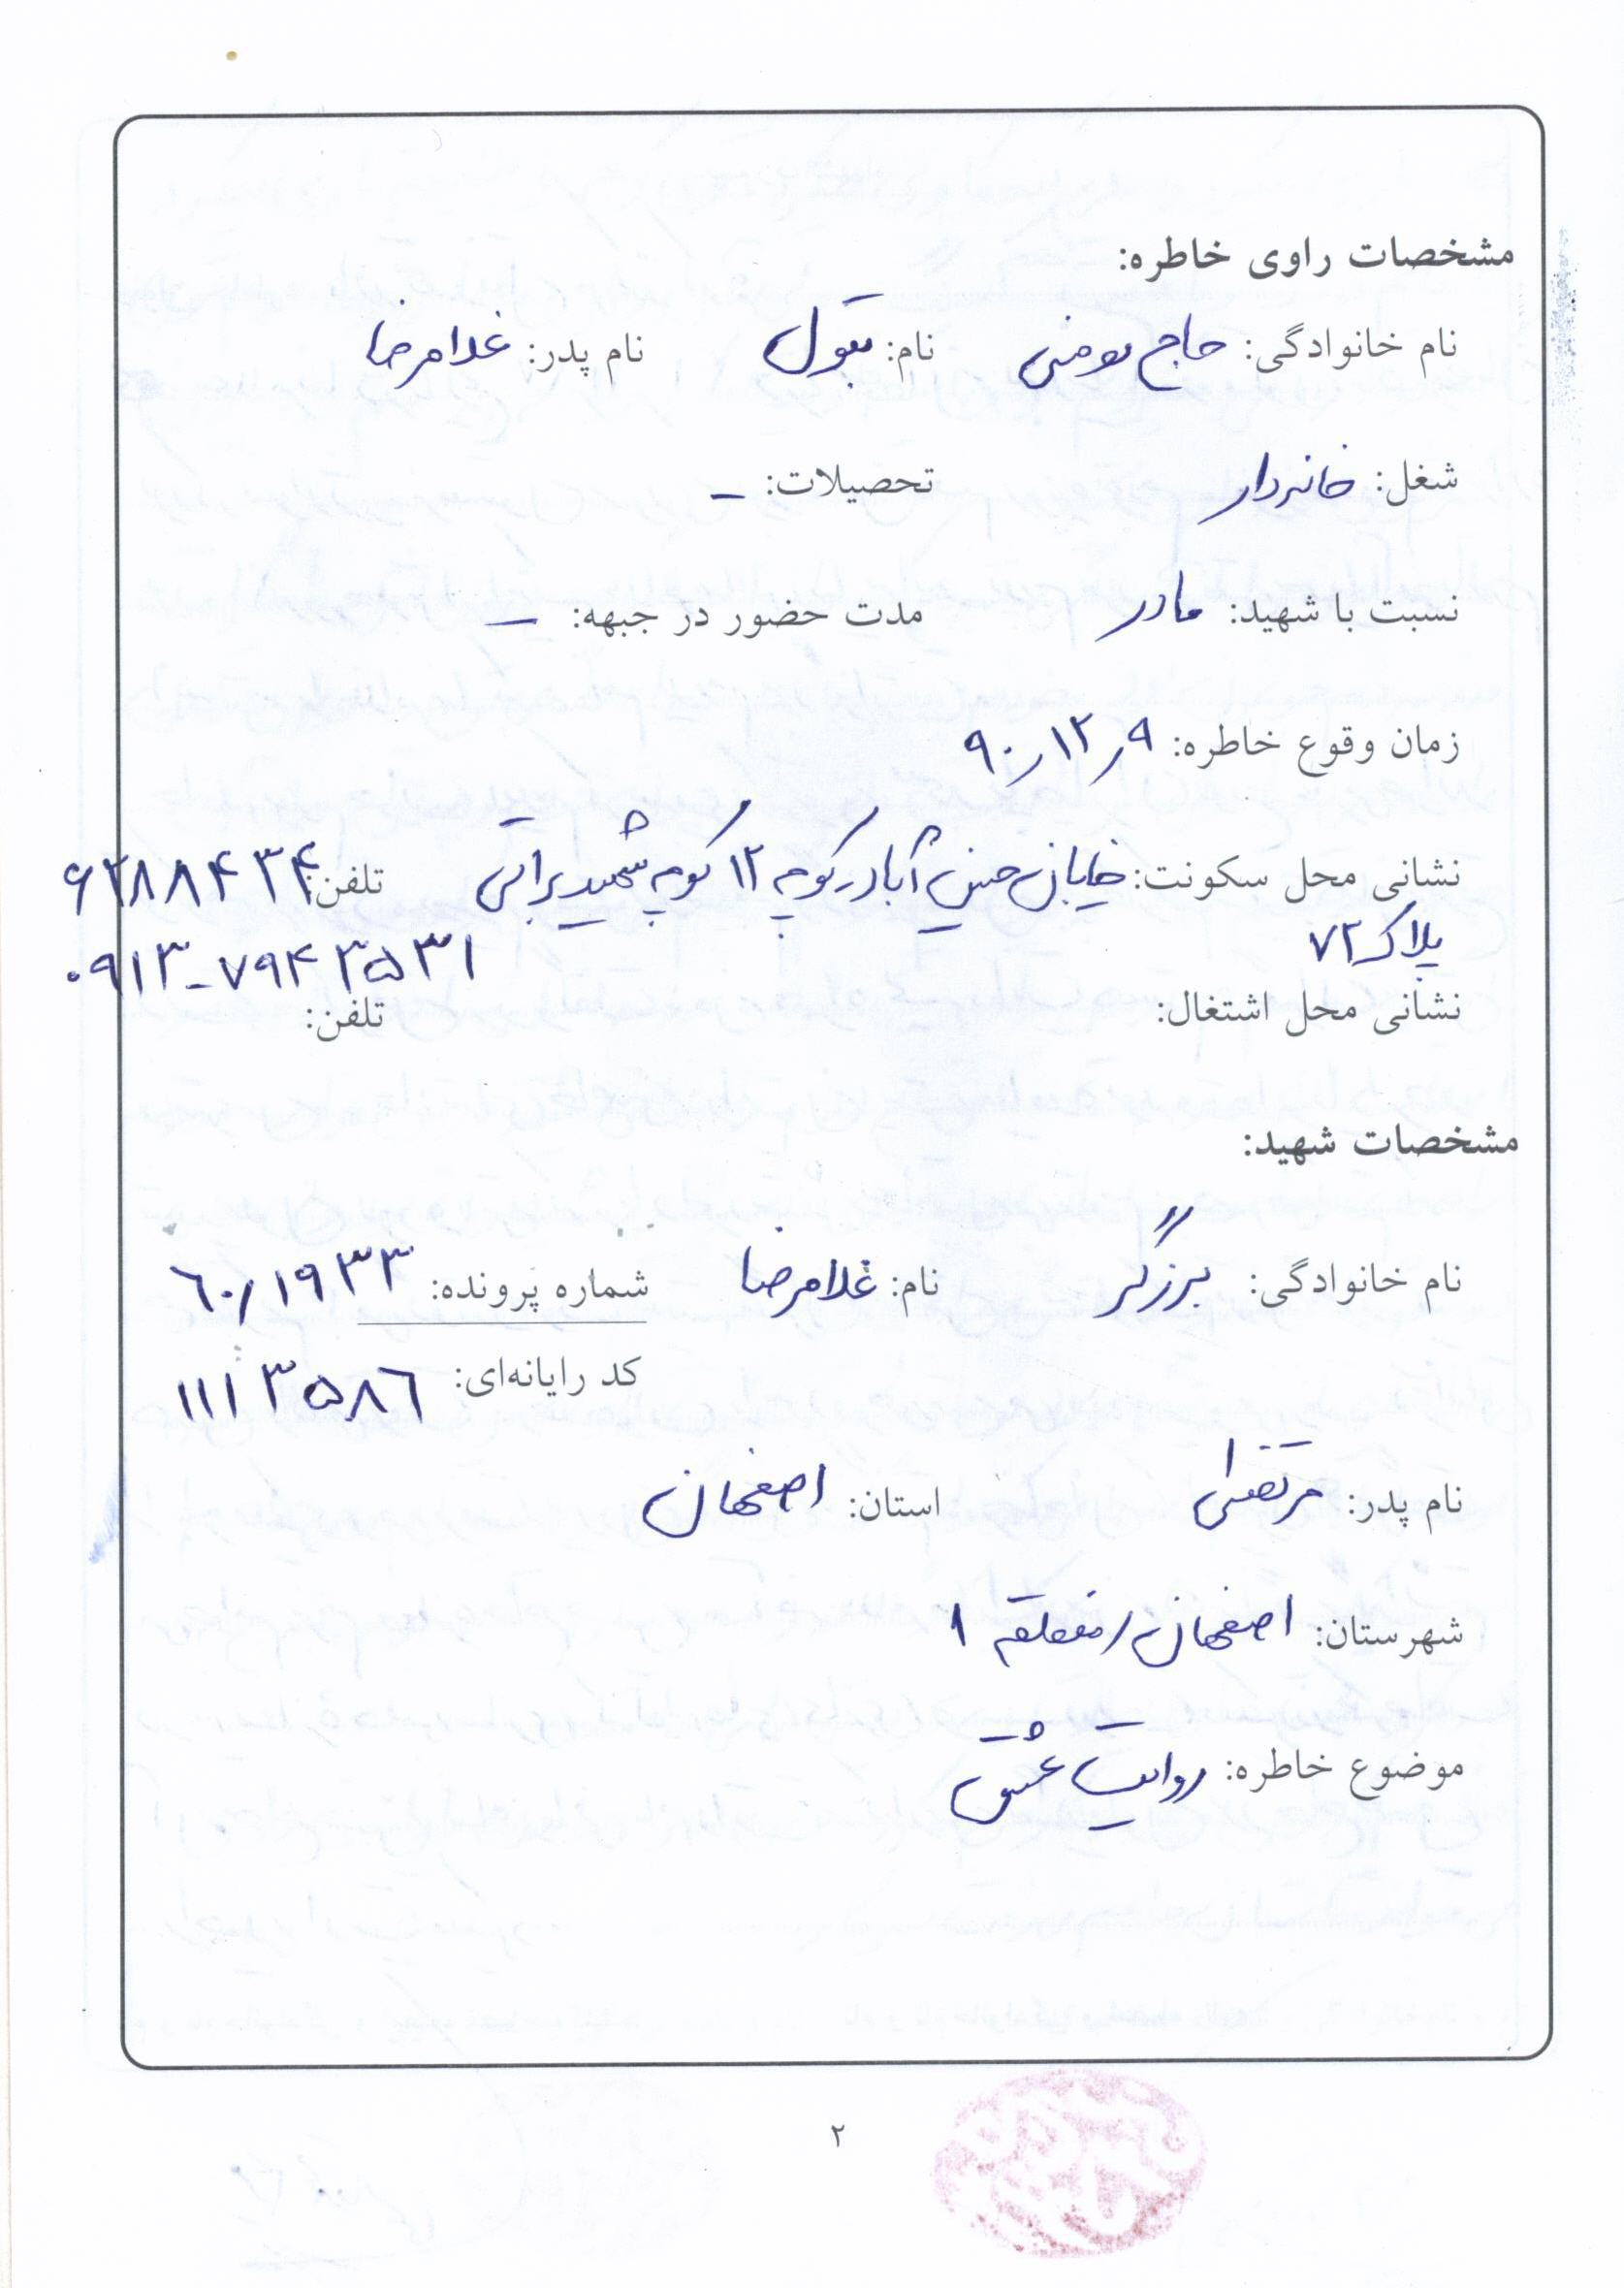 مشخصات راوی خاطره:
نام خانوادگی: حاج مومنی نام: بتول نام پدر: غلامرضا
شغل: خانه‌دار تحصیلات: ـ
نسبت با شهید: مادر مدت حضور در جبهه: ـ
زمان وقوع خاطره: ۹۰/۱۲/۹
نشانی محل سکونت: خیابان حسین آباد کوچه ۱۲ کوچه شهید براتی تلفن: ۶۲۸۸۴۳۴
پلاک ۷۲ ۰۹۱۳-۷۹۴۳۵۳۱
نشانی محل اشتغال: تلفن:
مشخصات شهید:
نام خانوادگی: برزگر نام: غلامرضا شماره پرونده: ۶۰/۱۹۳۳
کد رایانه‌ای: ۱۱۱۳۵۸۶
نام پدر: مرتضی استان: اصفهان
شهرستان: اصفهان/منطقه ۱
موضوع خاطره: روایت عشق
۲